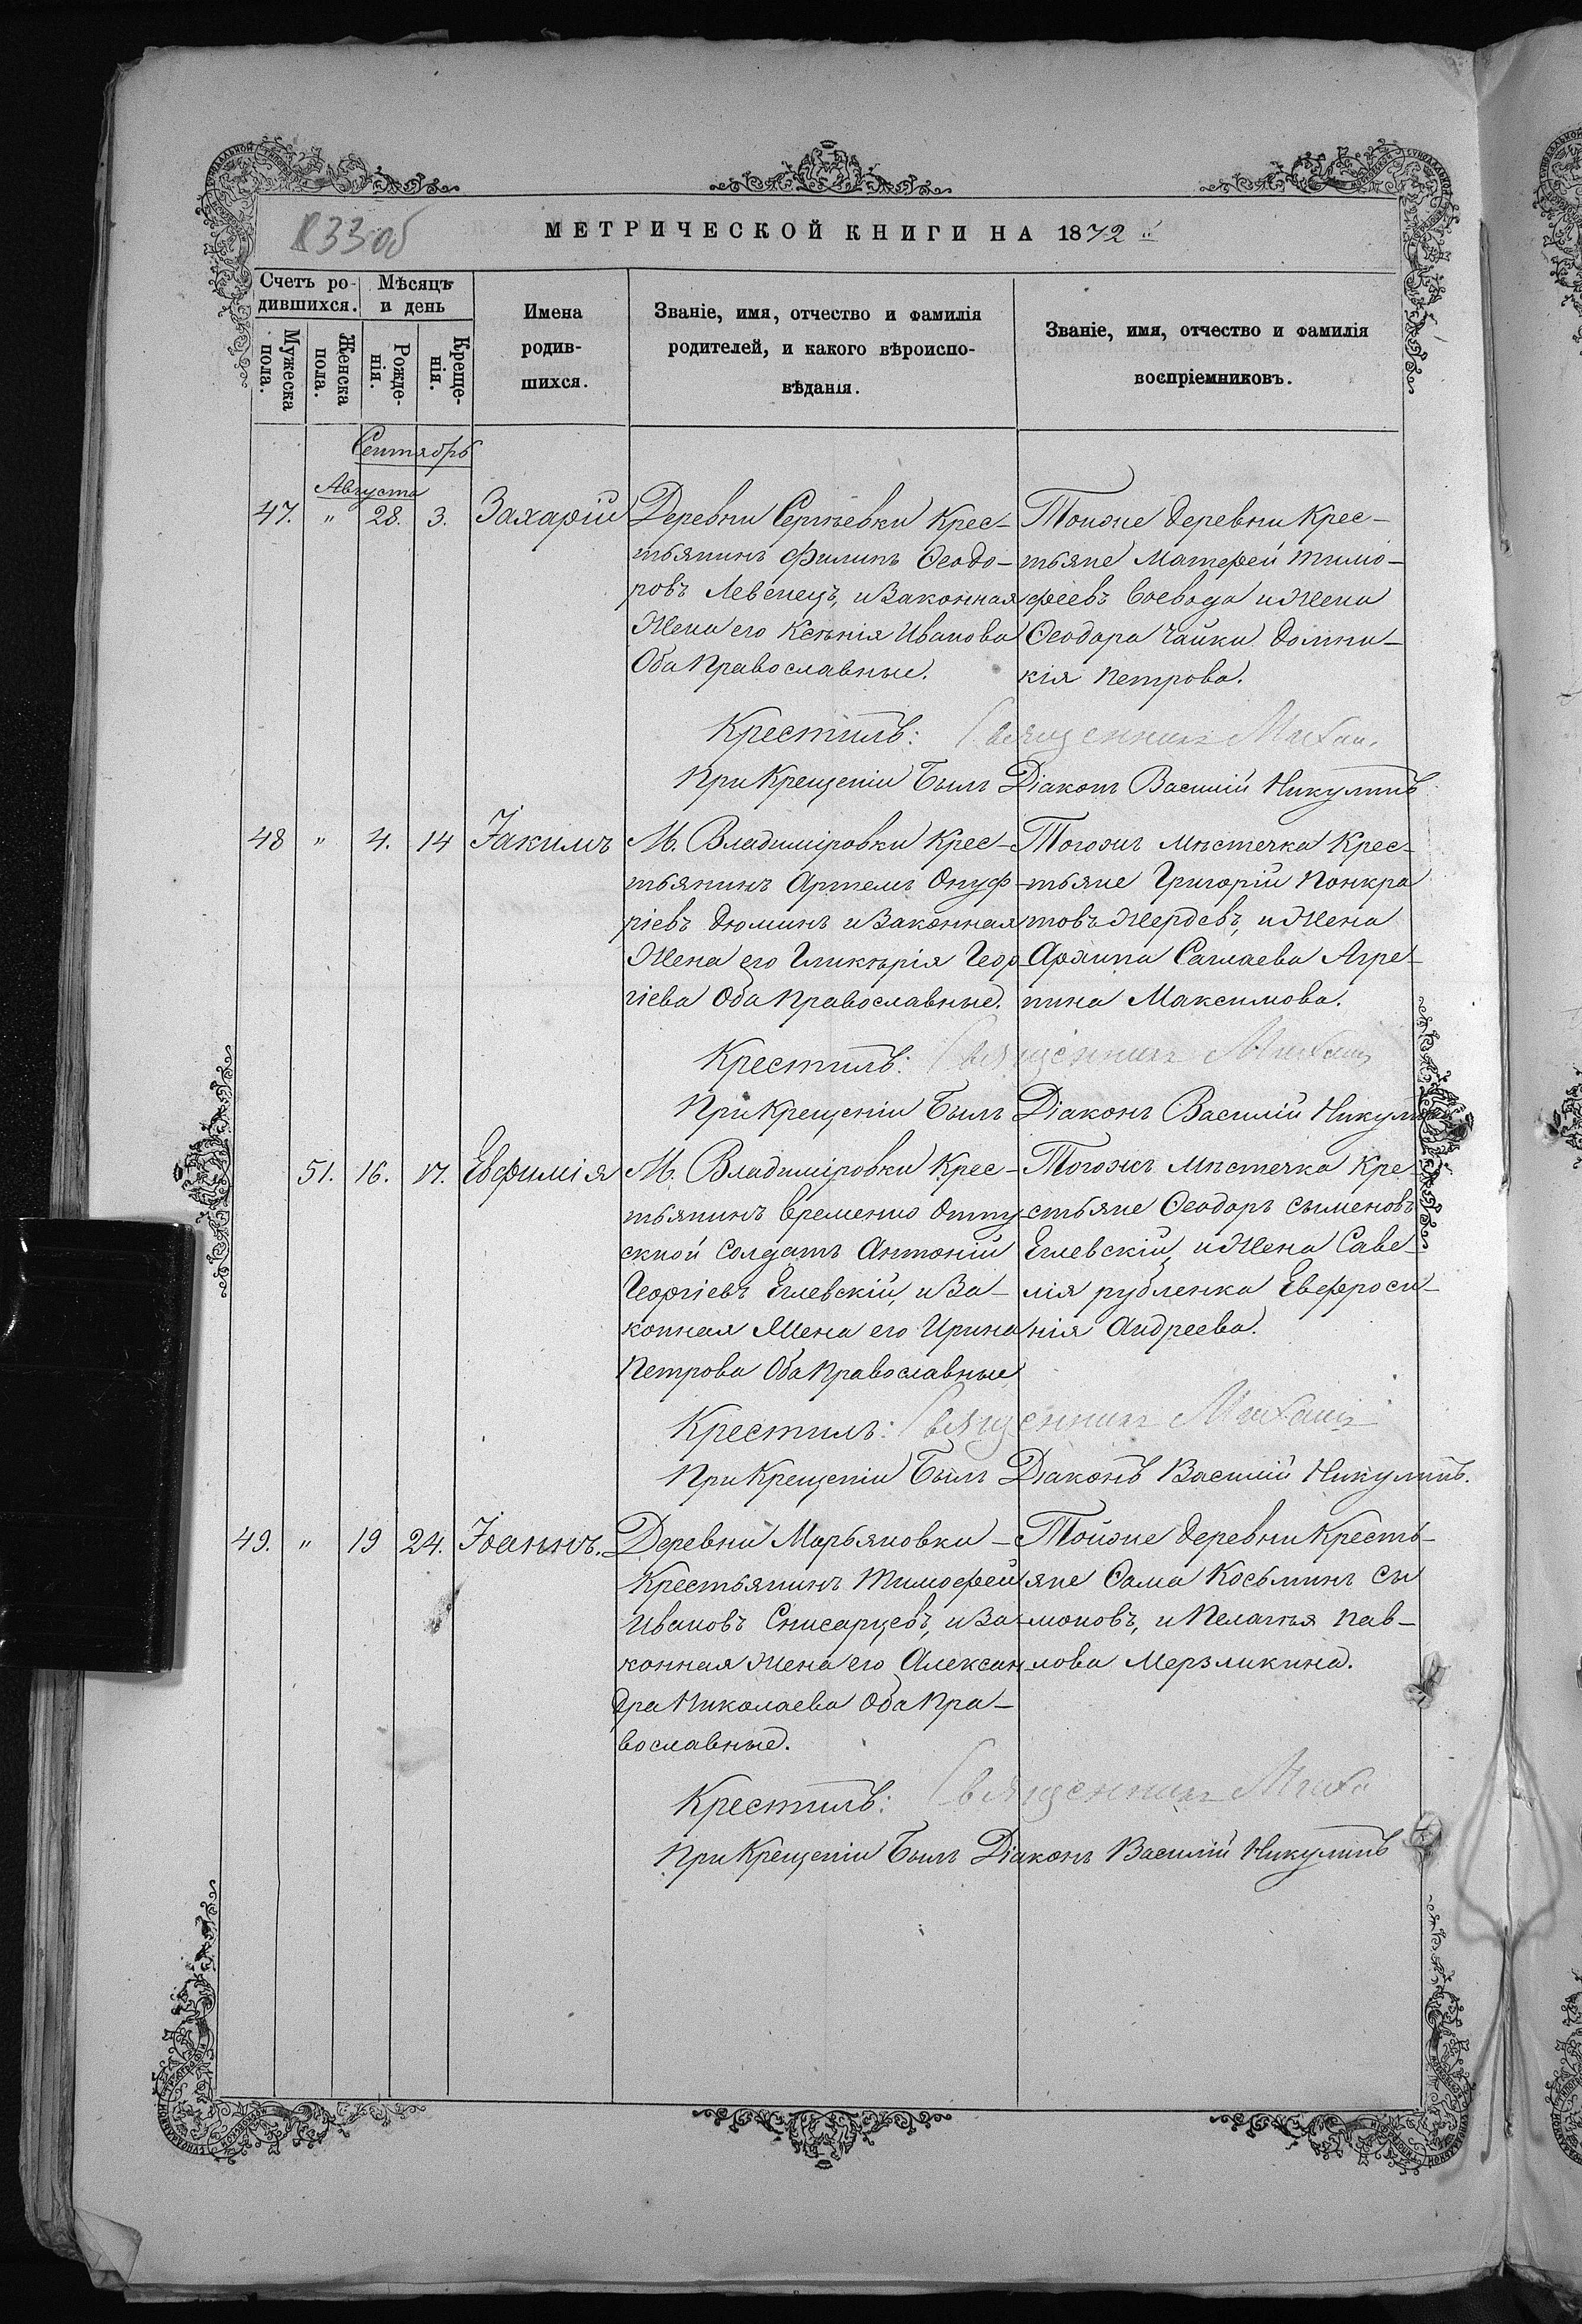 833об
МЕТРИЧЕСКОЙ КНИГИ НА 1872 й
Счетъ ро-
дившихся.
Мѣсяцъ
и день
Мужеска
пола.
Женска
пола.
Рожде-
нія.
Креще-
нія.
Имена
родив-
шихся.
Званіе, имя, отчество и фамилія
родителей, и какого вѣроиспо-
вѣданія.
Званіе, имя, отчество и фамилія
воспріемниковъ.
Сентябрь
Августа
47. " 28. 3. Захарій
Деревни Сергѣевки Крес-
тьянинъ Филипъ Ѳеодо-
ровъ Левенецъ, и Законная
Жена его Ксѣнія Иванова
Оба Православные.
Тойже деревни Крес-
тьяне Матфей Тимо-
феевъ Воевода и Жена
Ѳеодора Чайки Домни-
кія Петрова.
Крестилъ: Священникъ Михаи
При Крещеніи Былъ Діаконъ Василій Никулинъ
48 " 4. 14 Іакимъ
М. Владиміровки Крес-
тьянинъ Артемъ Онуф
ріевъ Дюминъ и Законная
Жена его Гликѣрія Геор
гіева Оба Православные.
Тогожъ Мѣстечка Крес-
тьяне Григорій Понкра
товъ Жердевъ, и Жена
Архипа Агре-
пина Максимова.
Крестилъ: Священникъ Михаилъ
При Крещеніи Былъ Діаконъ Василій Никулинъ
51. 16. 17. Евфимія
М. Владиміровки Крес-
тьянинъ временно отпу
скной Солдатъ Антоній
Георгіевъ Еглевскій, и За-
конная Жена его Ирина
Петрова Оба Православные
Тогожъ Мѣстечка Кре
стьяне Ѳеодоръ Сыменовъ
Еглевскій, и Жена Саве-
лія рубленка Евфроси-
нія Андреева.
Крестилъ: Священникъ Михаилъ
При Крещеніи Былъ Діаконъ Василій Никулинъ.
49. " 19 24. Іоаннъ.
Деревни Марьяновки -
Крестьянинъ Тимофей
Ивановъ Снисарцевъ, и За-
конная Жена его Алексан
дра Николаева Оба Пра-
вославные.
Тойже деревни Кресть-
яне Ѳома Косьминъ Сы
моновъ, и Пелагѣя Пав-
лова Мерзликина.
Крестилъ: Священникъ Миха
При Крещеніи Былъ Діаконъ Василій Никулинъ